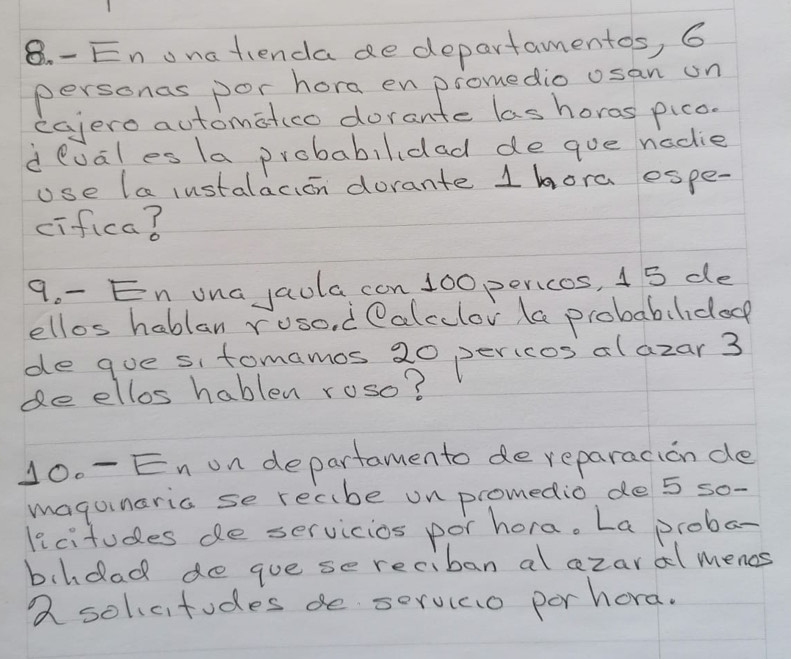 8.- En una tienda de departamentos, 6
personas por hora en promedio usan un
cajero automático durante las horas pico.
¿Cuál es la probabilidad de que nadie
use la instalación durante 1 hora espe-
cífica?
9.- En una jaula con 100 pericos, 15 de
ellos hablan ruso. ¿Calcular la probabilidad
de que si tomamos 20 pericos al azar 3
de ellos hablen ruso?
10.- En un departamento de reparación de
maquinaria se recibe un promedio de 5 so-
licitudes de servicios por hora. La proba-
bilidad de que se reciban al azar al menos
2 solicitudes de servicio por hora.